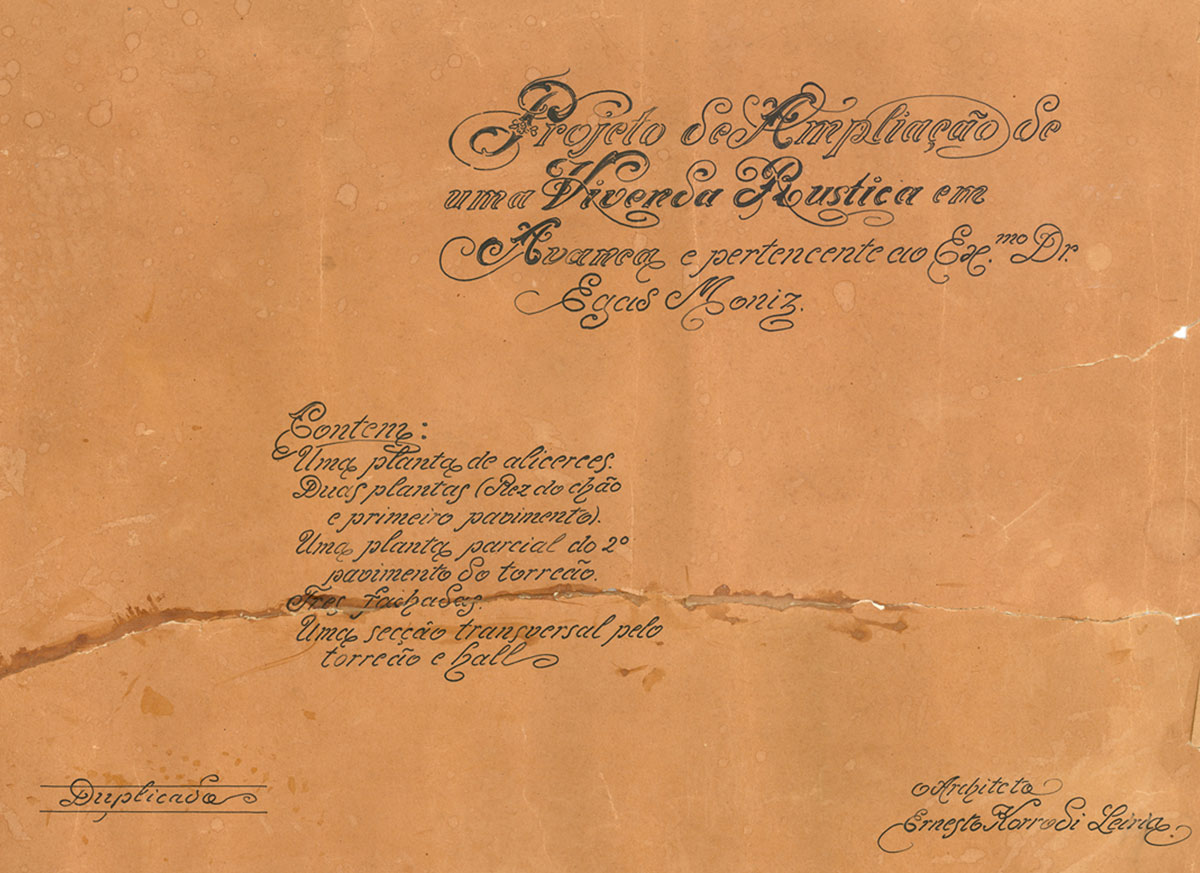 Projeto de Ampliação de
uma Vivenda Rustica em
Avanca e pertencente ao Ex.mo Dr.
Egas Moniz.
Contem:
Uma planta de alicerces.
Duas plantas (Rez do chão
e primeiro pavimento).
Uma planta parcial do 2º
pavimento do torreão.
Tres fachadas.
Uma secção transversal pelo
torreão e hall
Duplicado
o Architeto
Ernesto Korrodi Leiria.